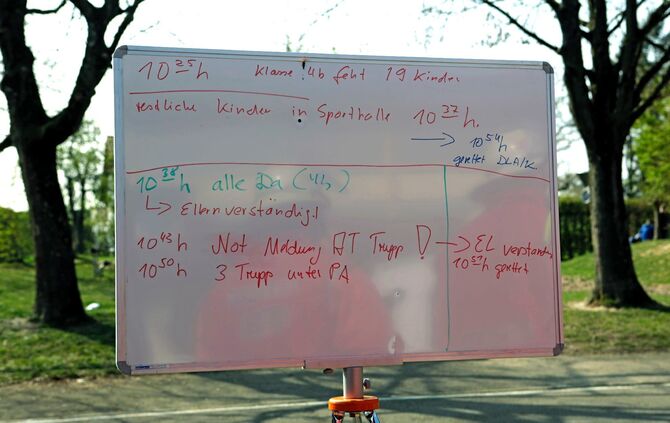 10 25 h Klasse 4b fehlt 19 Kinder
restliche Kinder in Sporthalle 10 37 h.
→ 10 54 h
gerettet DLA/K.
10 38 h alle Da (4b)
↳ Eltern verständigt
10 43 h Not Meldung AT Trupp ! → EL verständ
10 50 h 3 Trupp unter PA
10 57 h gerettet